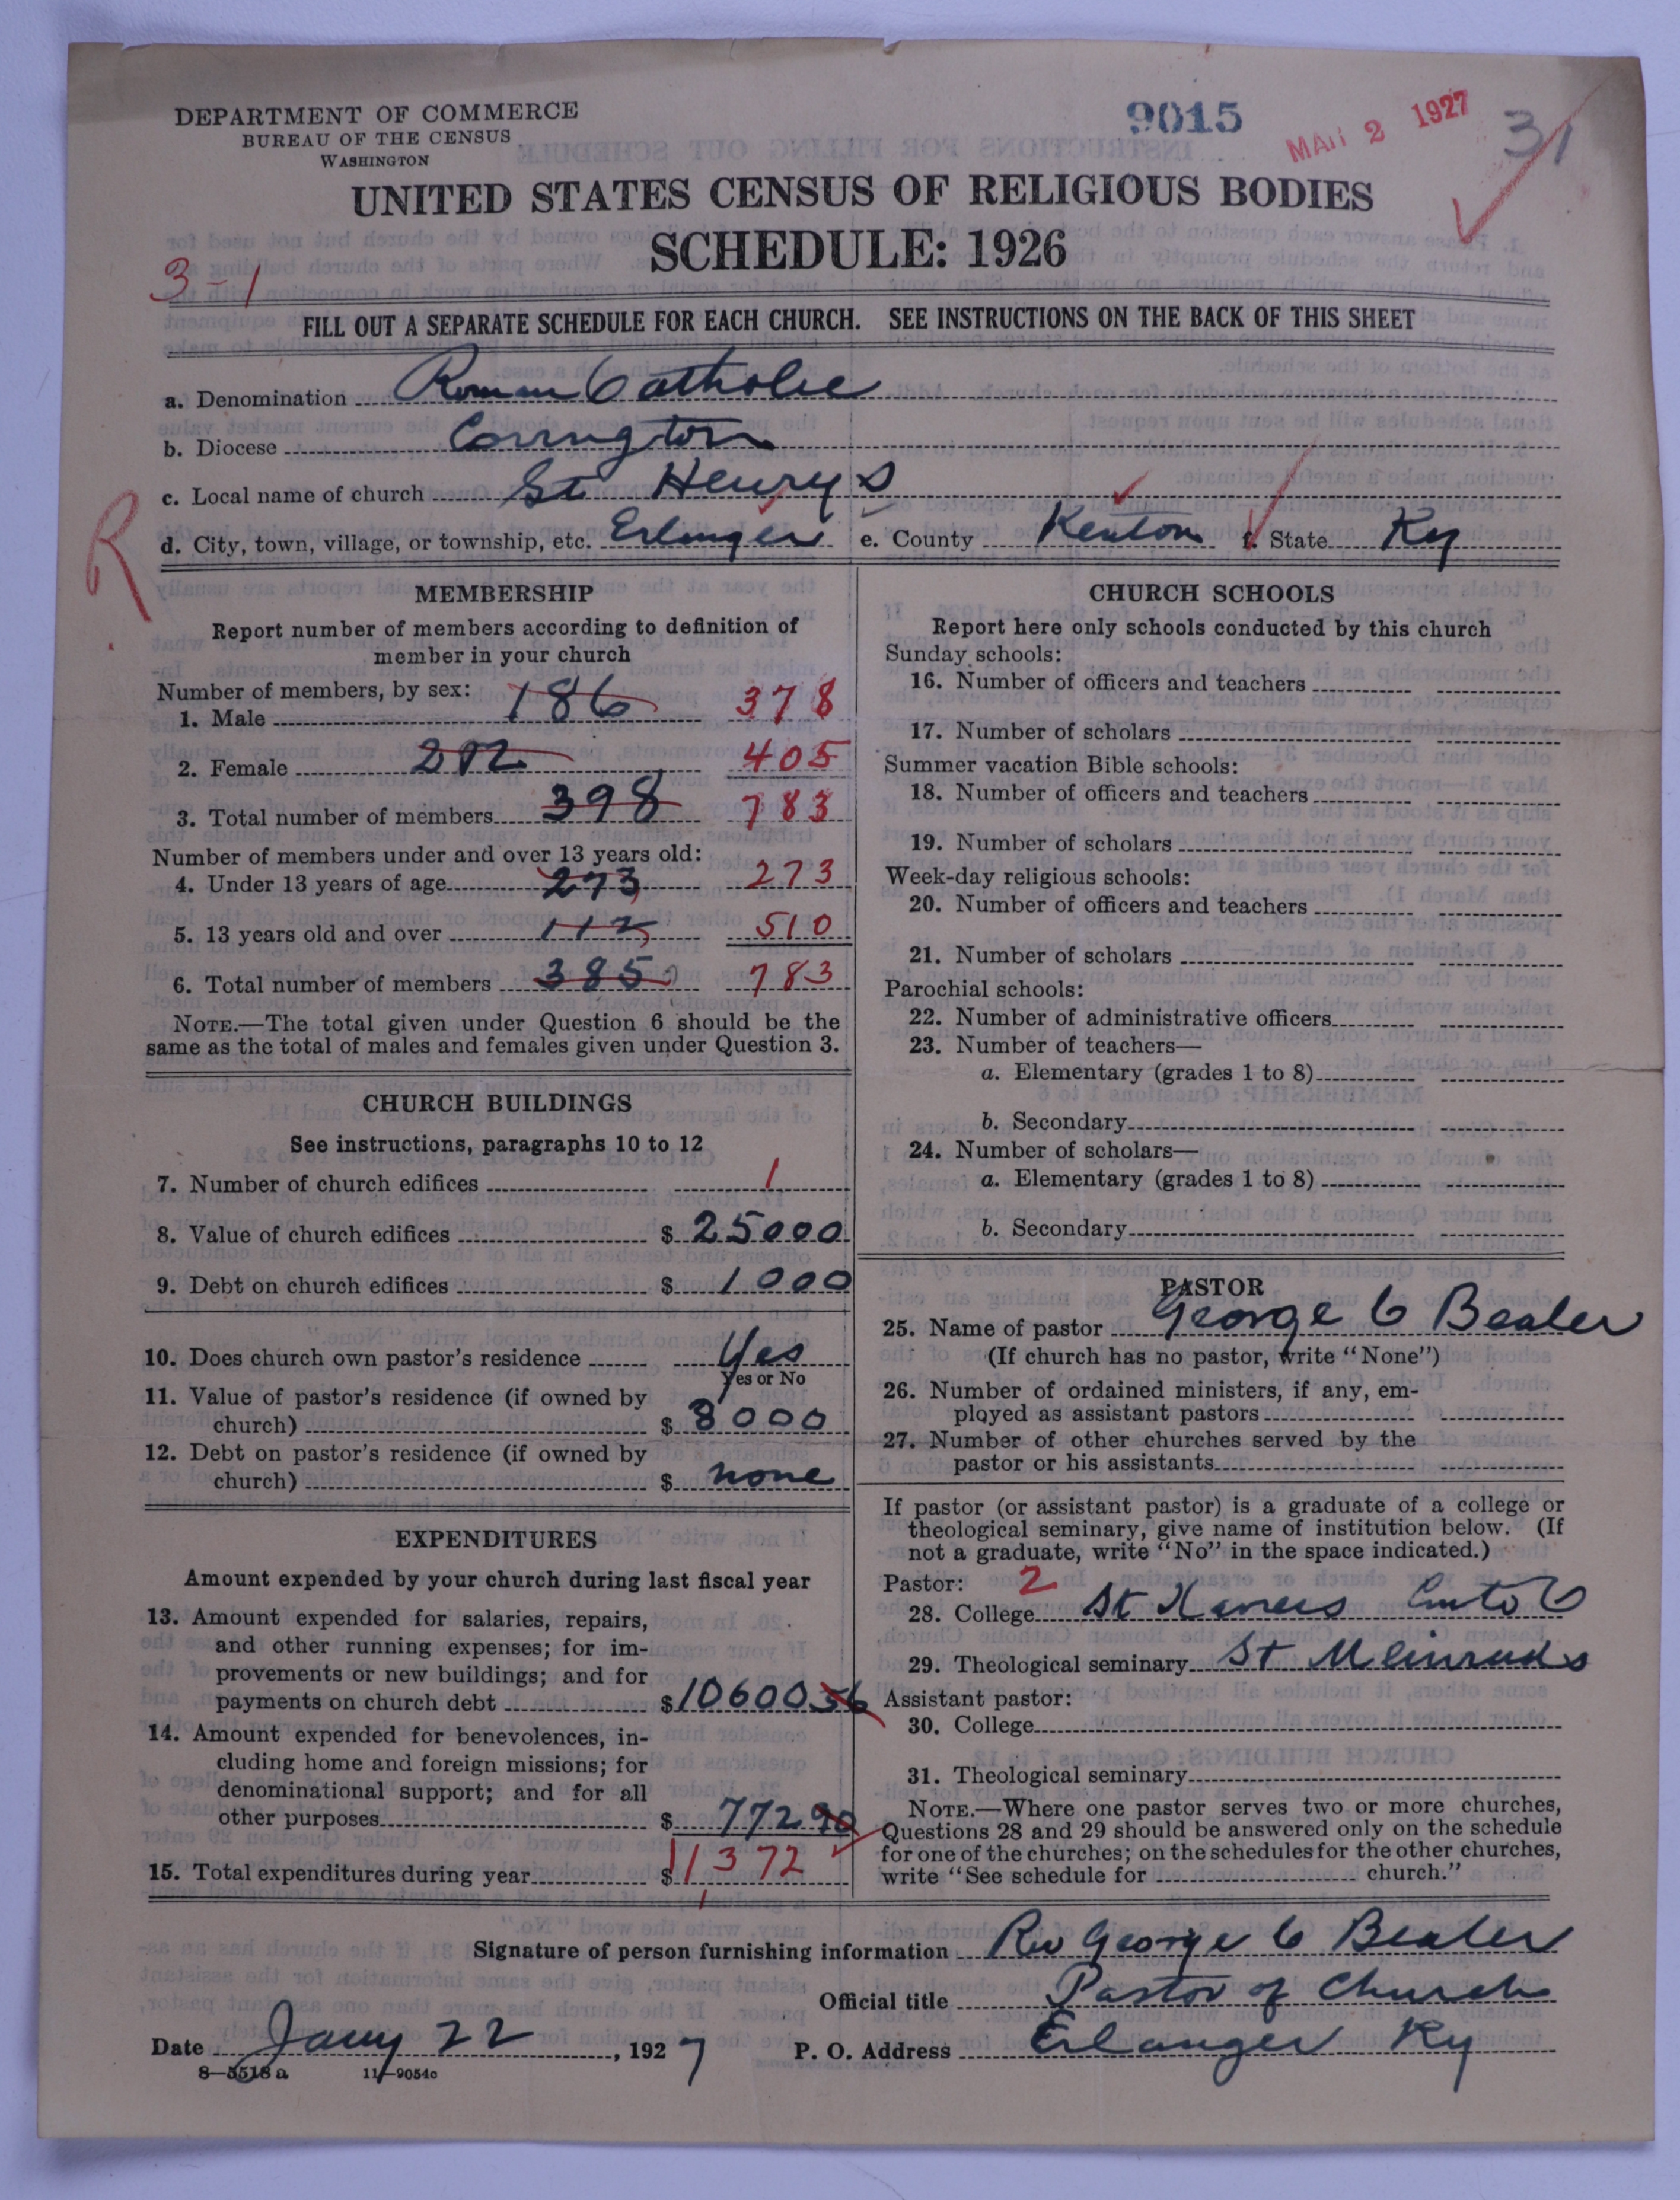 DEPARTMENT OF COMMERCE
BUREAU OF THE CENSUS
WASHINGTON
9015
MAR 2 1927
31
UNITED STATES CENSUS OF RELIGIOUS BODIES
SCHEDULE: 1926
3-1
FILL OUT A SEPARATE SCHEDULE FOR EACH CHURCH. SEE INSTRUCTIONS ON THE BACK OF THIS SHEET
a. Denomination Roman Catholic
b. Diocese Covington
c. Local name of church St Henry's
R
d. City, town, village, or township, etc. Erlanger e. County Kenton f. State Ky
MEMBERSHIP
Report number of members according to definition of
member in your church
Number of members, by sex:
1. Male 186 378
2. Female 212 405
3. Total number of members 398 783
Number of members under and over 13 years old:
4. Under 13 years of age 273 273
5. 13 years old and over 112 510
6. Total number of members 385 783
NOTE.—The total given under Question 6 should be the
same as the total of males and females given under Question 3.
CHURCH BUILDINGS
See instructions, paragraphs 10 to 12
7. Number of church edifices 1
8. Value of church edifices $ 25000
9. Debt on church edifices $ 1000
10. Does church own pastor's residence Yes
Yes or No
11. Value of pastor's residence (if owned by
church) $ 8000
12. Debt on pastor's residence (if owned by
church) $ none
EXPENDITURES
Amount expended by your church during last fiscal year
13. Amount expended for salaries, repairs,
and other running expenses; for im-
provements or new buildings; and for
payments on church debt $ 10600 56
14. Amount expended for benevolences, in-
cluding home and foreign missions; for
denominational support; and for all
other purposes $ 772 90
15. Total expenditures during year $ 11372
CHURCH SCHOOLS
Report here only schools conducted by this church
Sunday schools:
16. Number of officers and teachers
17. Number of scholars
Summer vacation Bible schools:
18. Number of officers and teachers
19. Number of scholars
Week-day religious schools:
20. Number of officers and teachers
21. Number of scholars
Parochial schools:
22. Number of administrative officers
23. Number of teachers—
a. Elementary (grades 1 to 8)
b. Secondary
24. Number of scholars—
a. Elementary (grades 1 to 8)
b. Secondary
PASTOR
25. Name of pastor George C Bealer
(If church has no pastor, write "None")
26. Number of ordained ministers, if any, em-
ployed as assistant pastors
27. Number of other churches served by the
pastor or his assistants
If pastor (or assistant pastor) is a graduate of a college or
theological seminary, give name of institution below. (If
not a graduate, write "No" in the space indicated.)
Pastor: 2
28. College St Xaviers Cinto O
29. Theological seminary St Meinrads
Assistant pastor:
30. College
31. Theological seminary
NOTE.—Where one pastor serves two or more churches,
Questions 28 and 29 should be answered only on the schedule
for one of the churches; on the schedules for the other churches,
write "See schedule for church."
Signature of person furnishing information Rev George C Bealer
Official title Pastor of Church
Date Jany 22, 1927 P. O. Address Erlanger Ky
8—5518 a 11—9054c